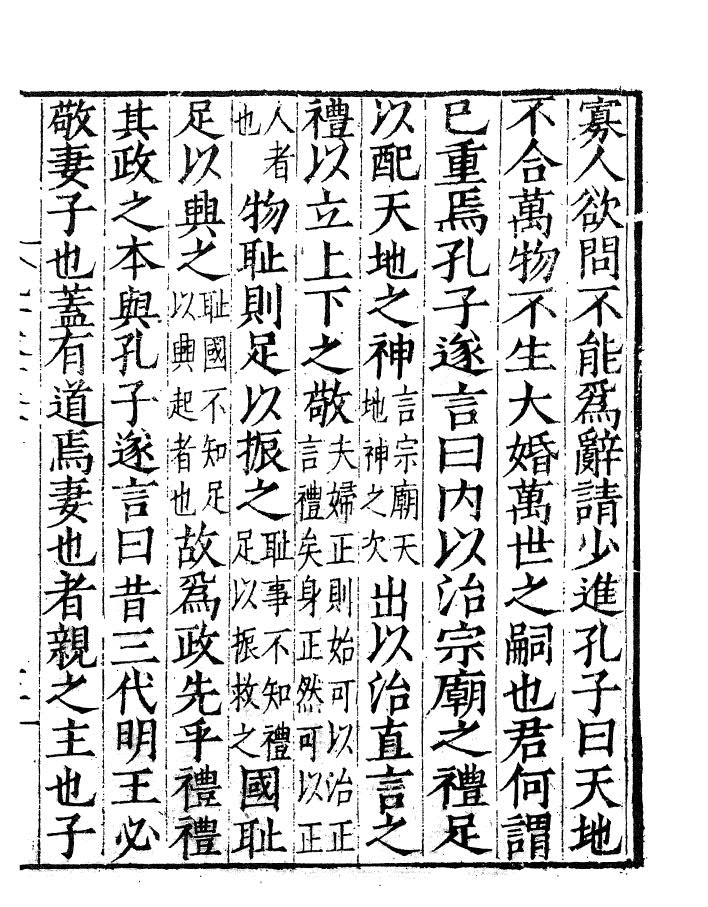 寡人欲問不能爲辭請少進孔子曰天地
不合萬物不生大婚萬世之嗣也君何謂
已重焉孔子遂言曰内以治宗廟之禮足
以配天地之神言宗廟天地神之次出以治直言之
禮以立上下之敬夫婦正則始可以治正言禮矣身正然可以正
人者也物耻則足以振之耻事不知禮足以振救之國耻
足以興之耻國不知足以興起者也故爲政先乎禮禮
其政之本與孔子遂言曰昔三代明王必
敬妻子也蓋有道焉妻也者親之主也子